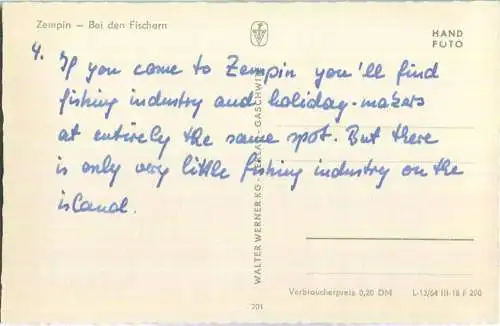 Zempin – Bei den Fischern
HAND
FOTO
4. If you come to Zempin you'll find
fishing industry and holiday-makers
at entirely the same spot. But there
is only very little fishing industry on the
island.
WALTER WERNER KG · VERLAG · GASCHWITZ
Verbraucherpreis 0,20 DM
L-13/64 III-18 F 290
201